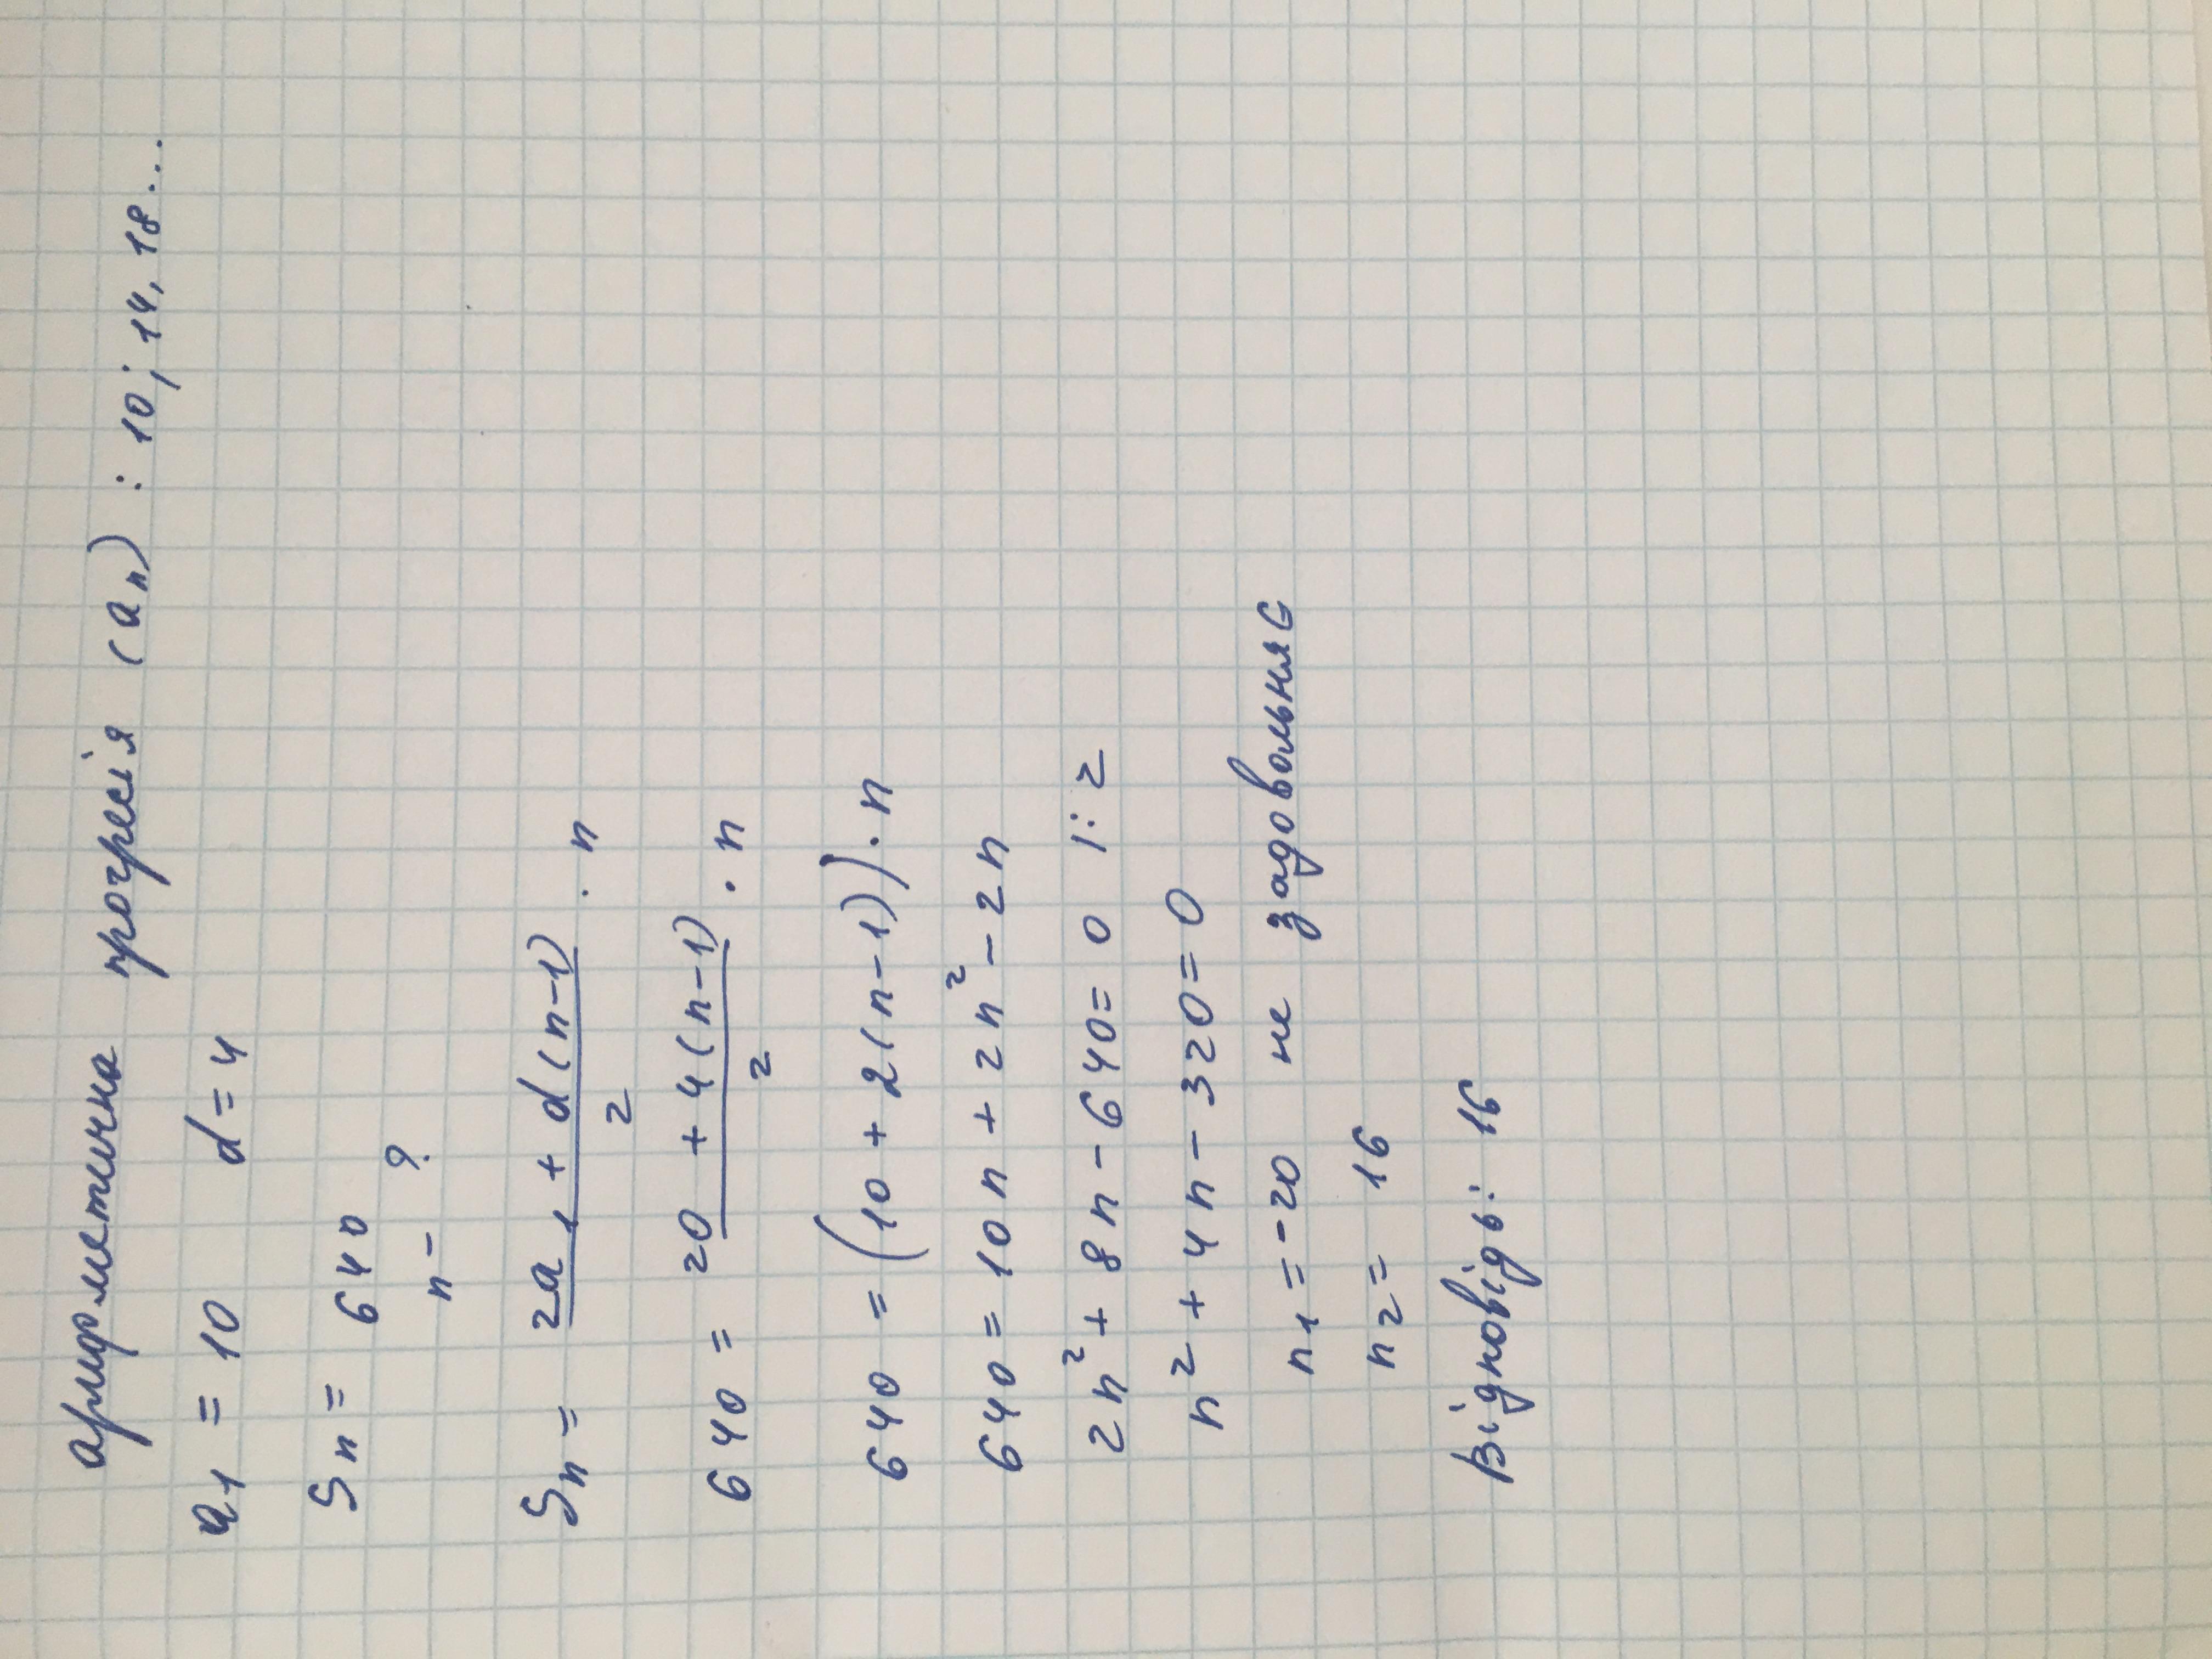 арифметична прогресія (aₙ) : 10; 14, 18...
a₁ = 10 d = 4
Sₙ = 640
n - ?
Sₙ = (2a₁ + d(n-1))/2 · n
640 = (20 + 4(n-1))/2 · n
640 = (10 + 2(n-1)) · n
640 = 10n + 2n² - 2n
2n² + 8n - 640 = 0 |: 2
n² + 4n - 320 = 0
n₁ = -20 не задовольняє
n₂ = 16
Відповідь: 16